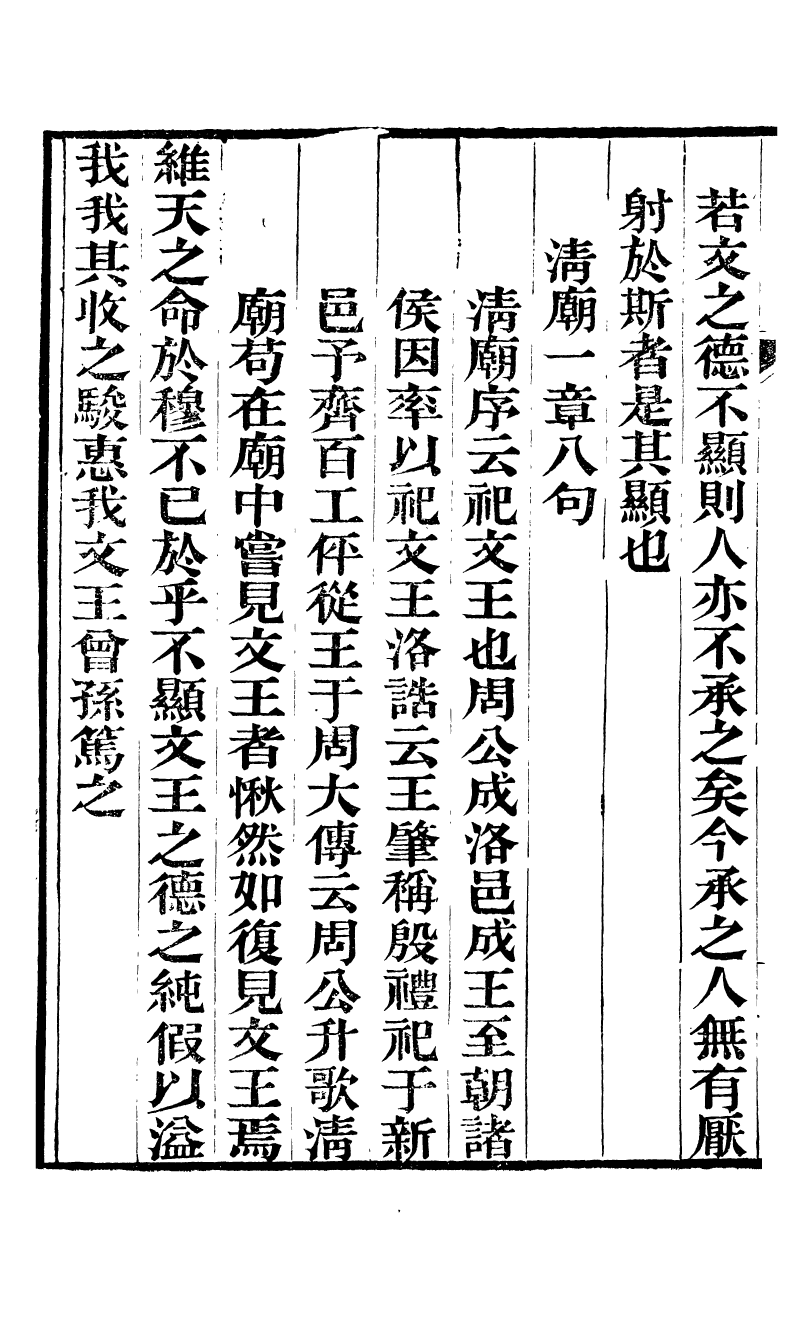 若文之德不顯則人亦不承之矣今承之人無有厭
射於斯者是其顯也
淸廟一章八句
淸廟序云祀文王也周公成洛邑成王至朝諸
侯因率以祀文王洛誥云王肇稱殷禮祀于新
邑予齊百工伻從王于周大傳云周公升歌淸
廟苟在廟中嘗見文王者愀然如復見文王焉
維天之命於穆不已於乎不顯文王之德之純假以溢
我我其收之駿惠我文王曾孫篤之